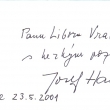 Panu Liboru Vra
s hezkým poz
Josef Ha
23.5.2001